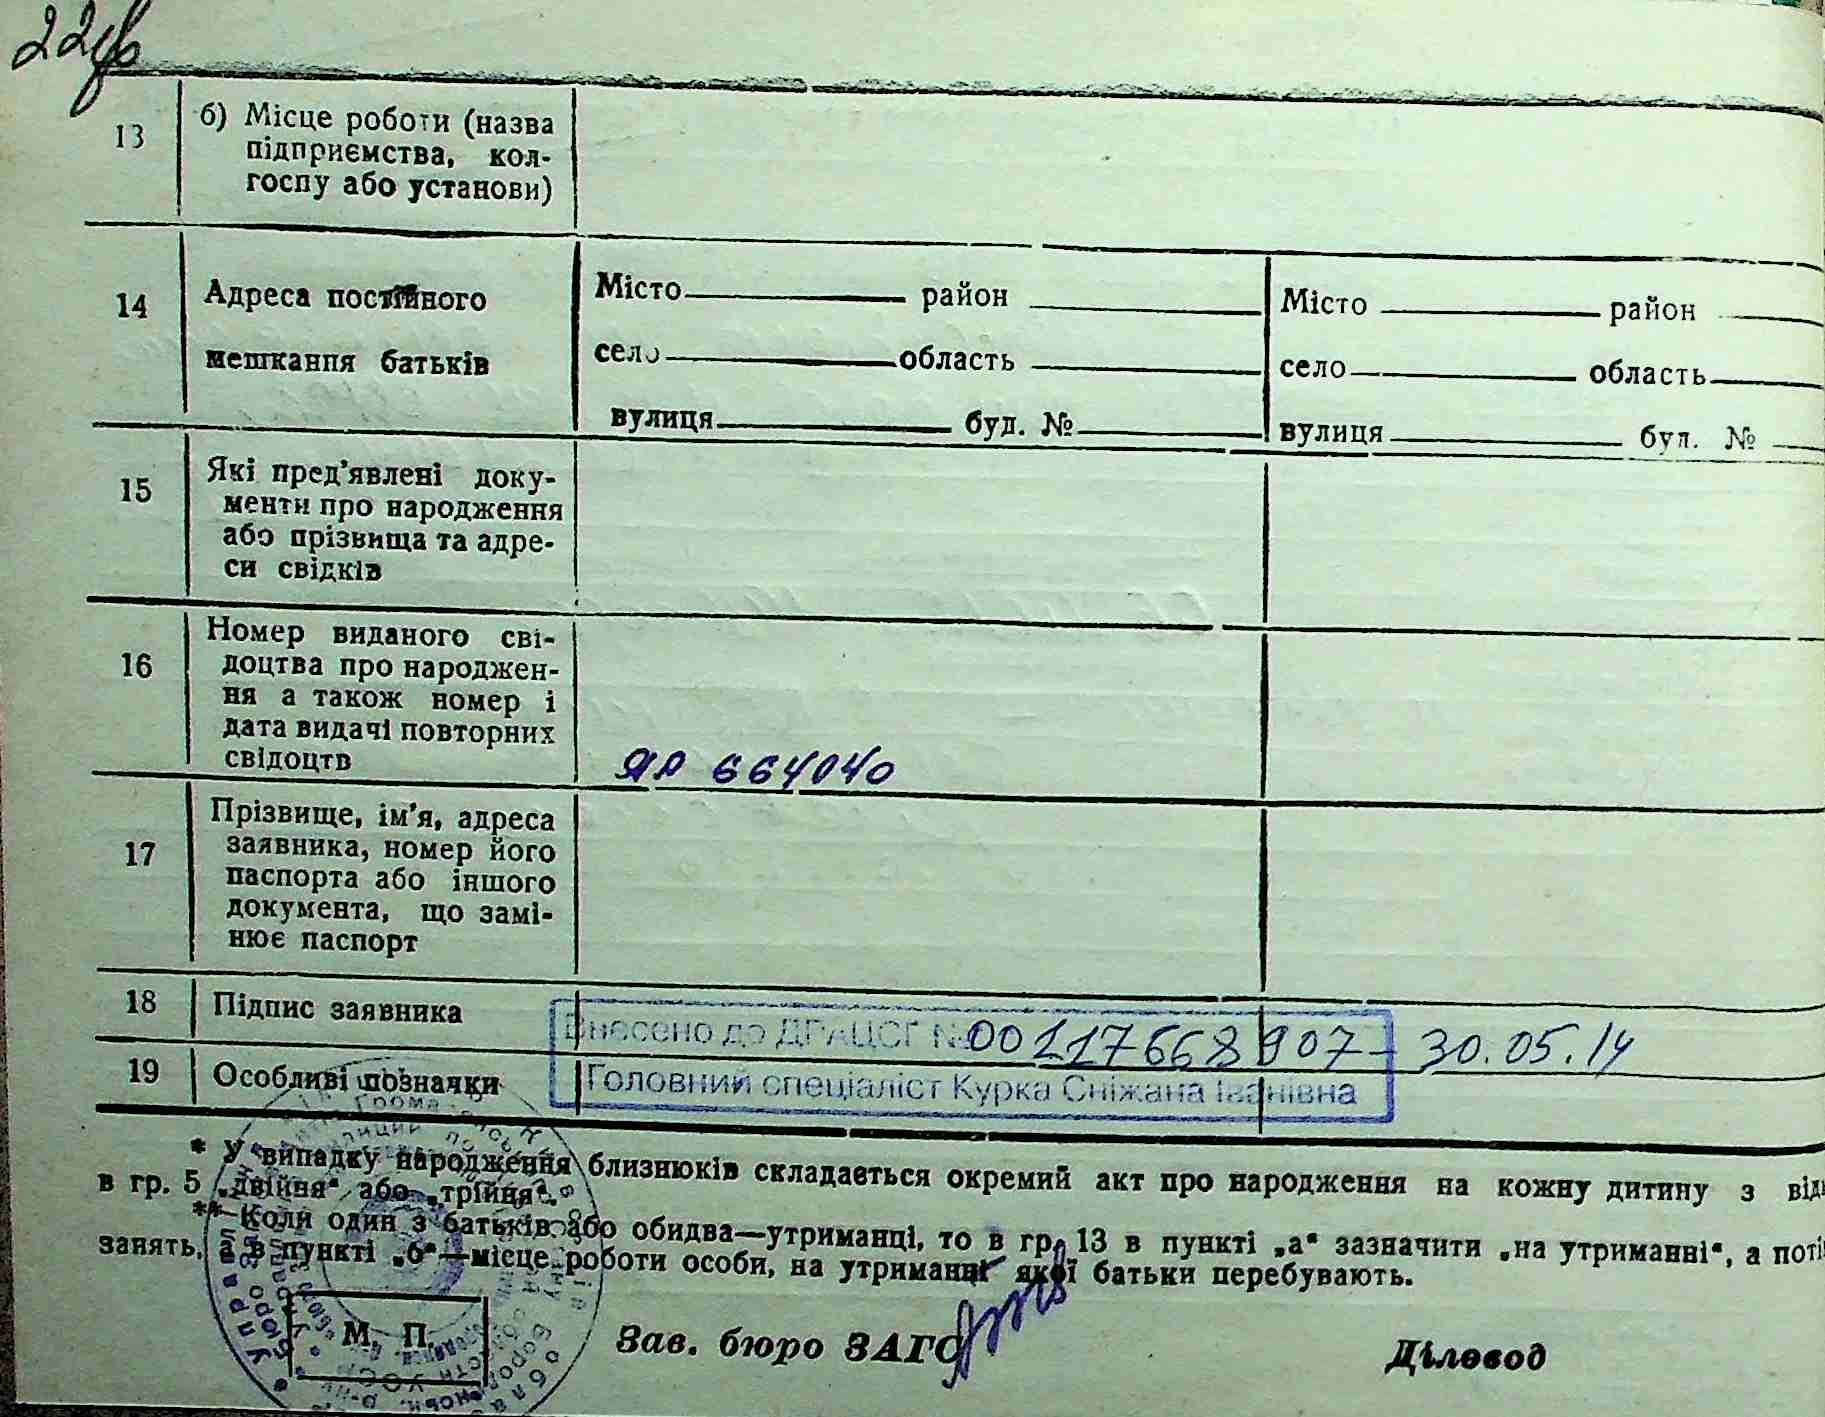 22
13
б) Місце роботи (назва
підприємства, кол-
госпу або установи)
14
Адреса постійного
мешкання батьків
Місто район
село область
вулиця буд. №
Місто район
село область
вулиця буд. №
15
Які пред'явлені доку-
менти про народження
або прізвища та адре-
си свідків
16
Номер виданого сві-
доцтва про народжен-
ня а також номер і
дата видачі повторних
свідоцтв
664040
17
Прізвище, ім'я, адреса
заявника, номер його
паспорта або іншого
документа, що замі-
нює паспорт
18
Підпис заявника
Внесено до ДРАЦСГ № 00117668907 - 30.05.14
19
Особливі позначки
Головний спеціаліст Курка Сніжана Іванівна
* У випадку народження близнюків складається окремий акт про народження на кожну дитину з від
в гр. 5 „двійня“ або „трійня“.
**Коли один з батьків або обидва—утриманці, то в гр. 13 в пункті „а“ зазначити „на утриманні“, а поті
занять, а в пункті „б“—місце роботи особи, на утриманні якої батьки перебувають.
М. П.
Зав. бюро ЗАГС
Діловод